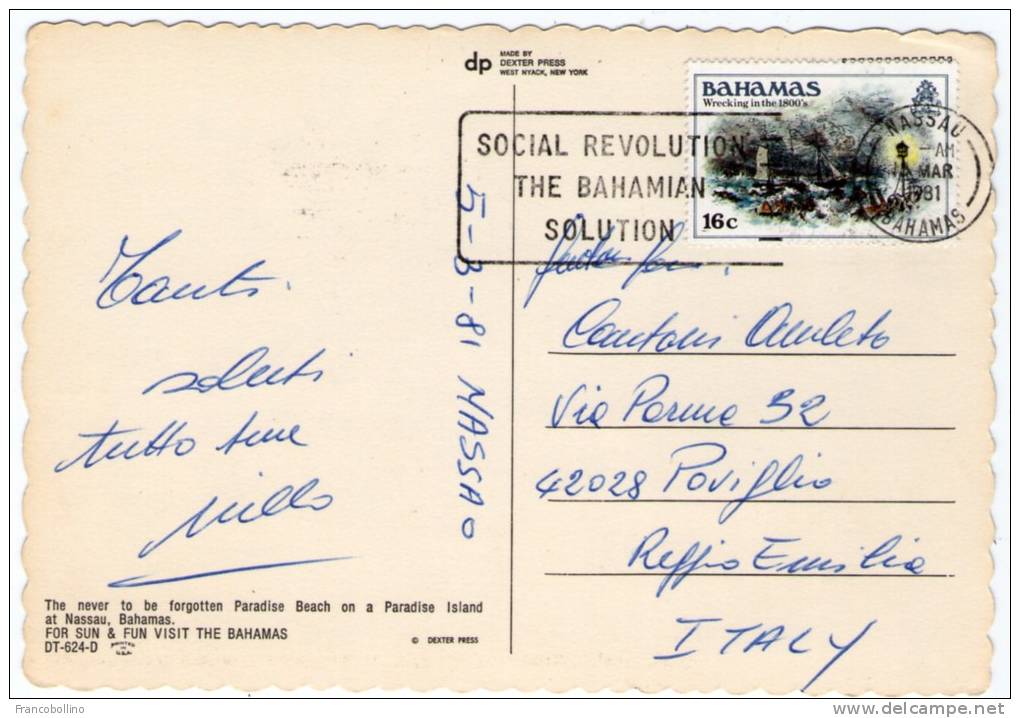 dp MADE BY
DEXTER PRESS
WEST NYACK, NEW YORK
BAHAMAS
Wrecking in the 1800's
16c
NASSAU
-AM
MAR
1981
BAHAMAS
SOCIAL REVOLUTION
THE BAHAMIAN
SOLUTION
5-3-81 NASSAO
Tanti
saluti
tutto bene
nillo
Cantoni Amleto
Via Parma 32
42028 Poviglio
Reggio Emilia
ITALY
The never to be forgotten Paradise Beach on a Paradise Island
at Nassau, Bahamas.
FOR SUN & FUN VISIT THE BAHAMAS
DT-624-D PRINTED IN U.S.A.
© DEXTER PRESS
Francobollino
delcampe.net